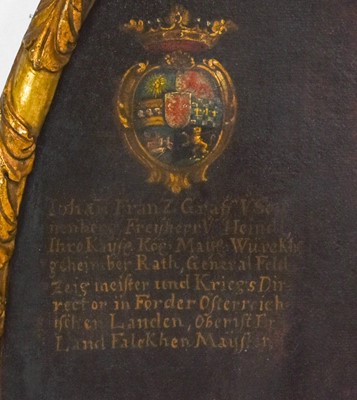 Johan Franz Graff V So
nenberg, Freÿherr V Heind
Ihro Kaÿse Kög: Maÿe: Würckh
geheimber Rath, General Feld
Zeigmeister und Kriegs Dir
rector in Forder Osterreich
ischen Landen, Oberist Er
Land Falckhen Maÿster,